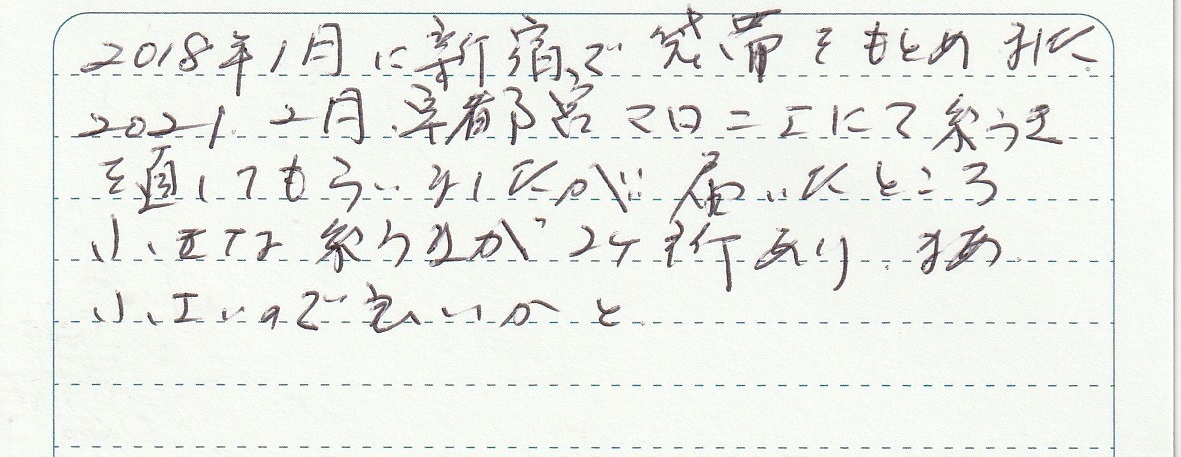 2018年1月に新宿で 袋帯をもとめました
2021.2月.宇都宮マロニエにて糸うき
を直してもらいましたが届いたところ
小さな糸うきが2ケ所あり.まあ
小さいので良いかと